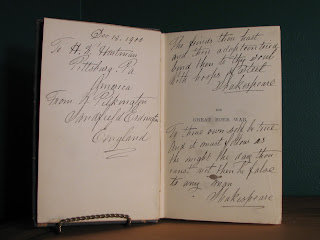 Dec 19, 1900
To H. J.
Pittsburg. Pa
America
From
Sandfield
England
The friends thou hast
and their adoption tried
bind them to thy soul
with hoops of steel
Shakespeare
THE
GREAT BOER WAR
To thine own self be true
And it must follow as
the night the day thou
canst not then be false
to any man
Shakespeare